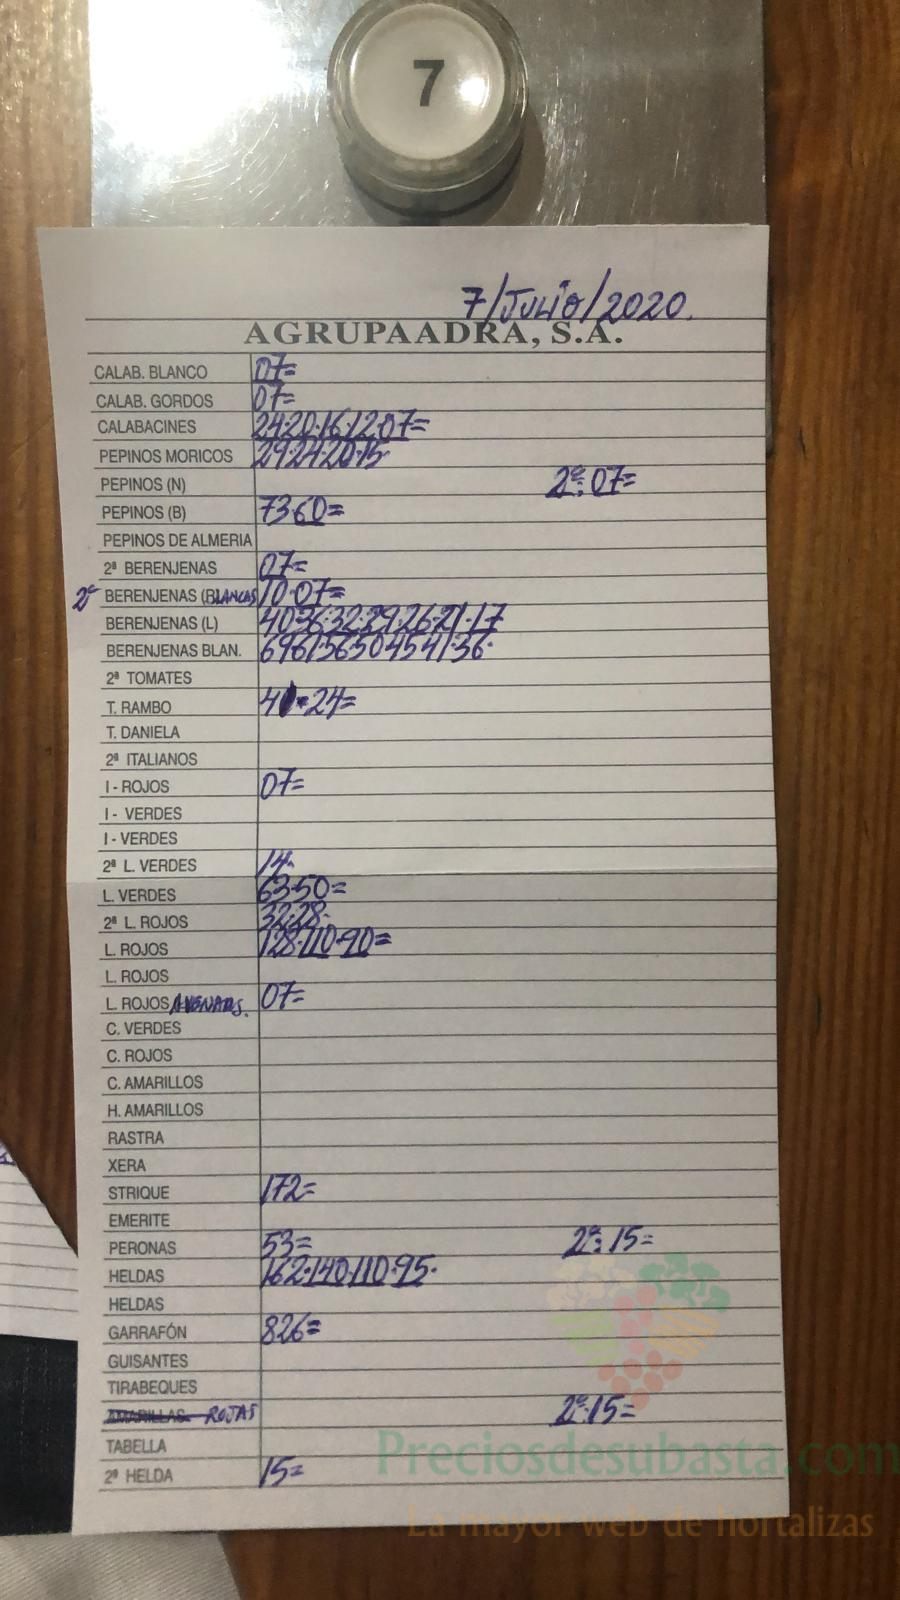 7
7/JULIO/2020.
AGRUPAADRA, S.A.
CALAB. BLANCO 07=
CALAB. GORDOS 07=
CALABACINES 24·20·16·12·07=
PEPINOS MORICOS 29·24·20·15·
PEPINOS (N) 2ª: 07=
PEPINOS (B) 73·60=
PEPINOS DE ALMERIA
2ª BERENJENAS 07=
2ª BERENJENAS (BLANCAS) 10·07=
BERENJENAS (L) 40·36·32·29·26·21·17
BERENJENAS BLAN. 69·61·56·50·45·41·36·
2ª TOMATES
T. RAMBO 24=
T. DANIELA
2ª ITALIANOS
I - ROJOS 07=
I - VERDES
I - VERDES
2ª L. VERDES 14·
L. VERDES 63·50=
2ª L. ROJOS 32·28·
L. ROJOS 128·110·90=
L. ROJOS
L. ROJOS 07=
C. VERDES
C. ROJOS
C. AMARILLOS
H. AMARILLOS
RASTRA
XERA
STRIQUE 172=
EMERITE
PERONAS 53= 2ª: 15=
HELDAS 162·140·110·95·
HELDAS
GARRAFÓN 826=
GUISANTES
TIRABEQUES
AMARILLAS ROJAS 2ª·15=
TABELLA
2ª HELDA 15=
Preciosdesubasta.com
La mayor web de hortalizas